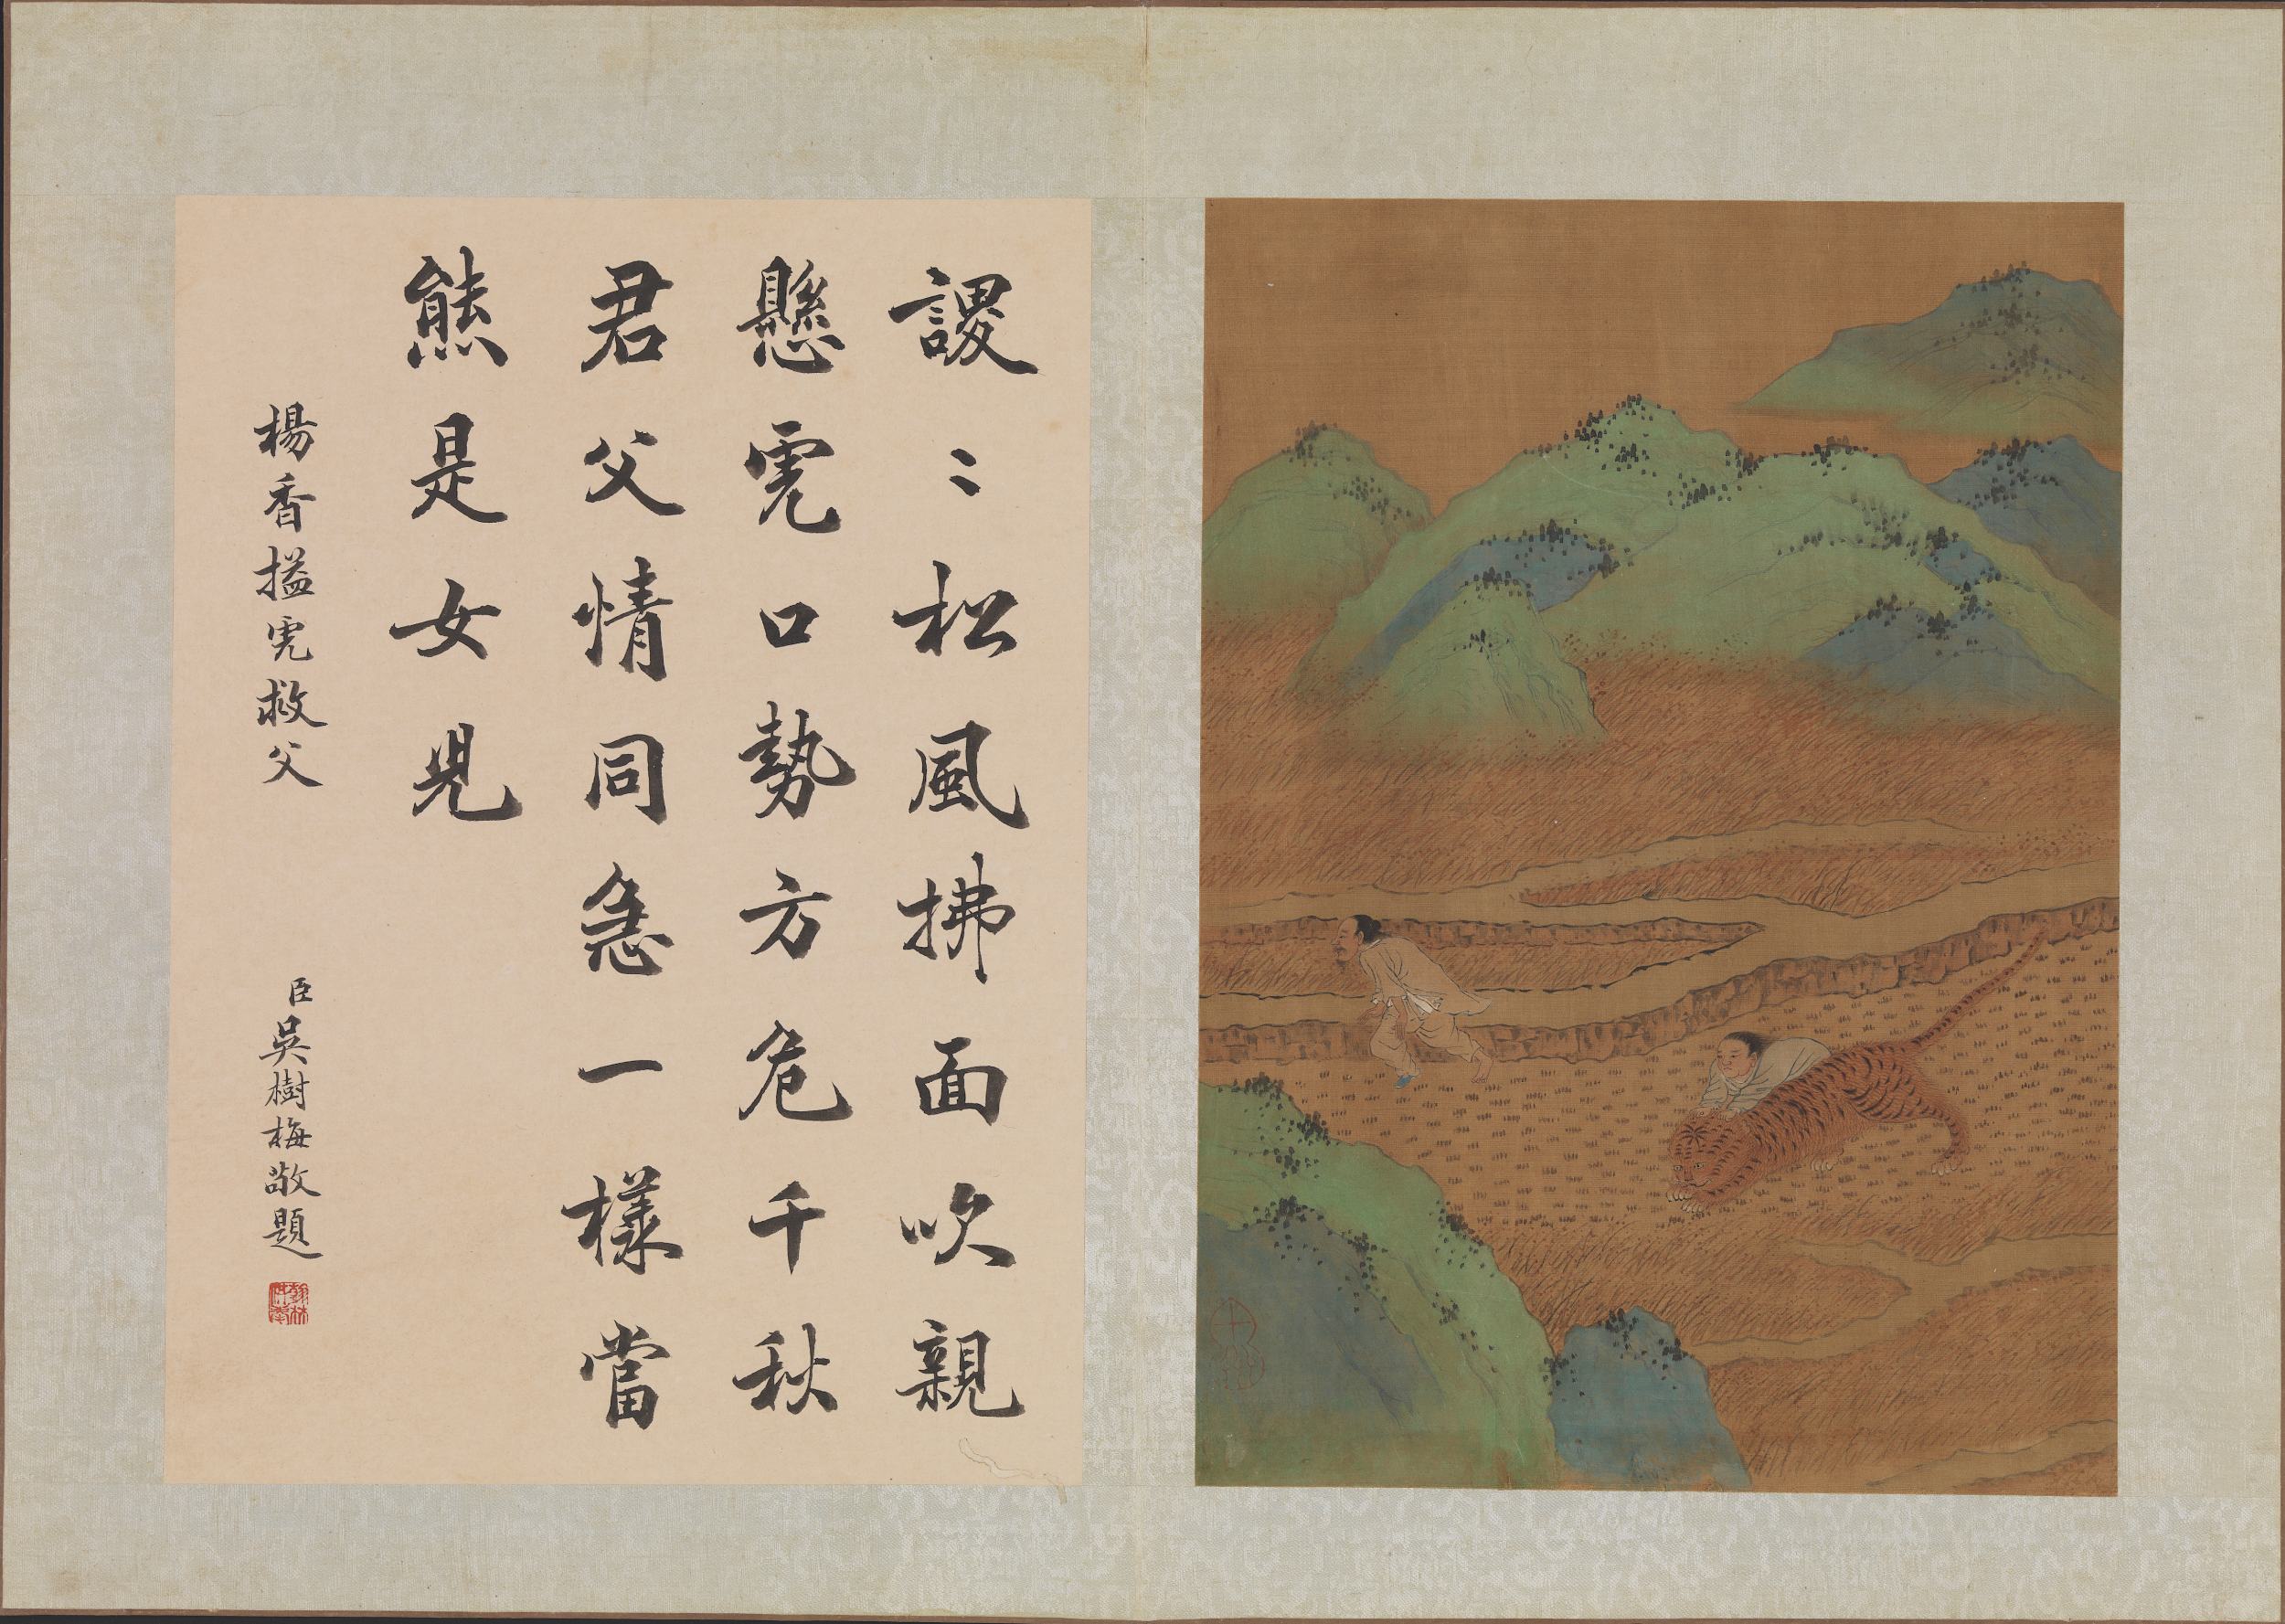 謖〻松風拂面吹親
懸虎口勢方危千秋
君父情同急一樣當
熊是女兒
楊香搤虎救父
臣吳樹梅敬題